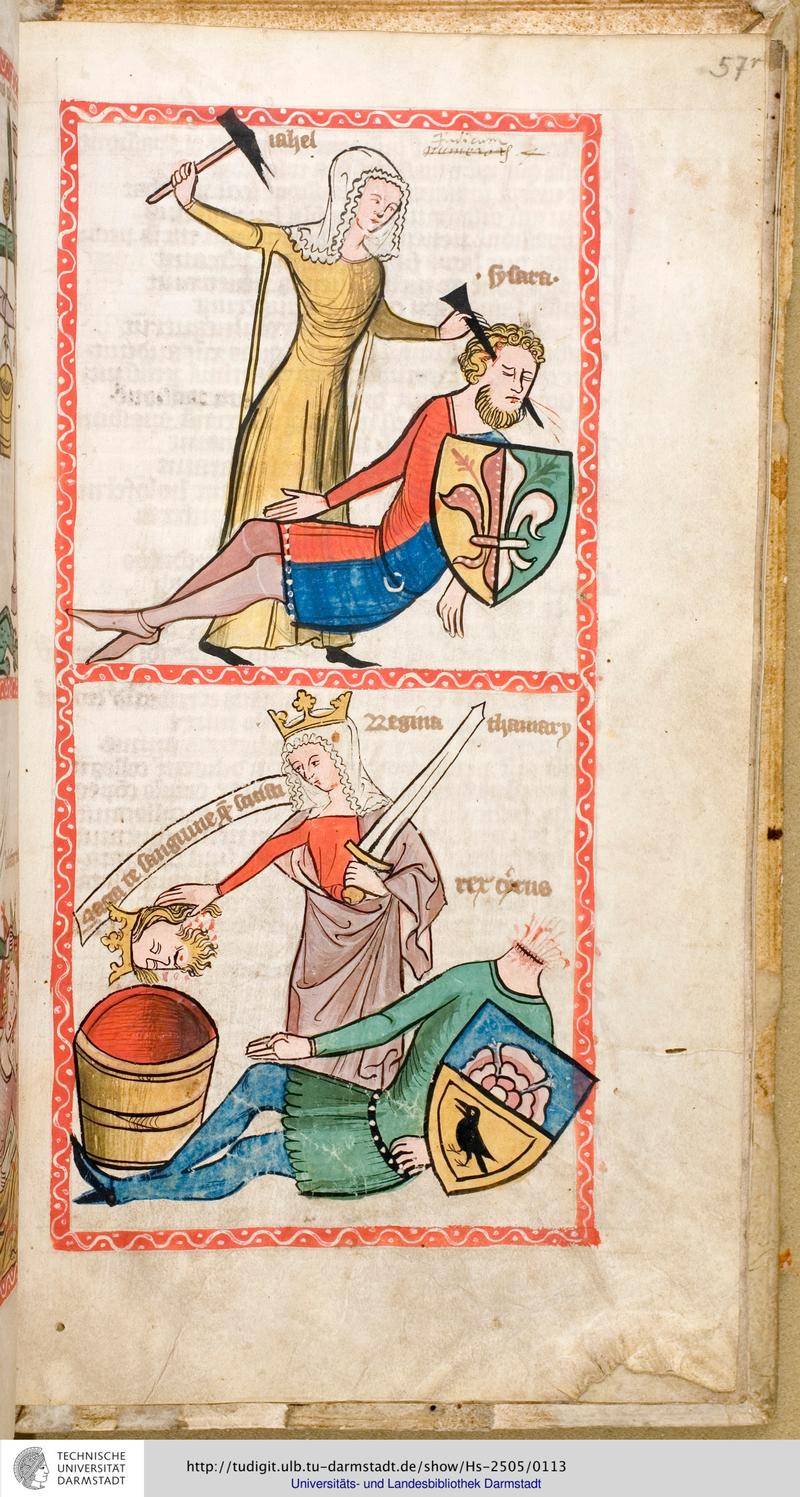 57r
iahel
Judicum
Numerorum 4
· sysara ·
Regina thamary
sacia te sanguine quem sitisti
rex cirus
TECHNISCHE
UNIVERSITÄT
DARMSTADT
http://tudigit.ulb.tu-darmstadt.de/show/Hs-2505/0113
Universitäts- und Landesbibliothek Darmstadt